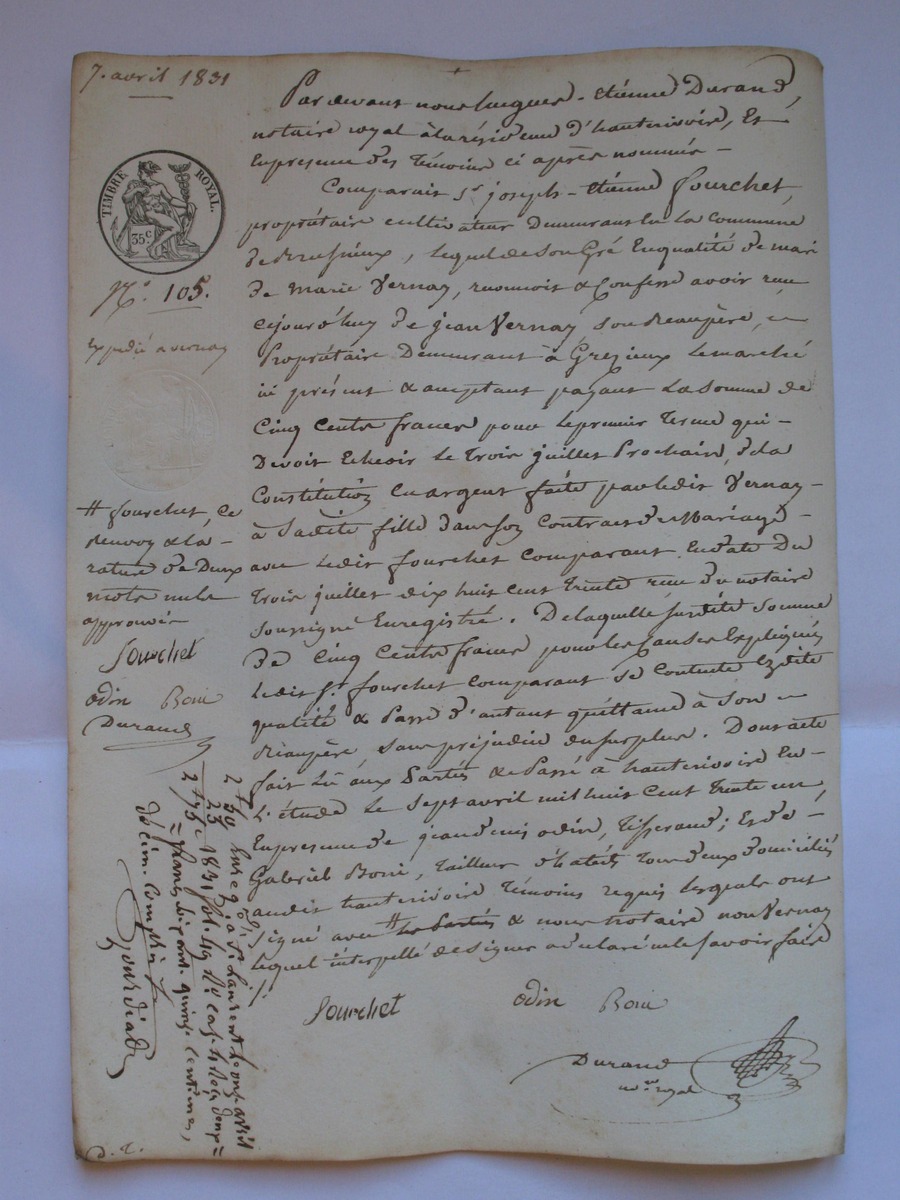 7. avril 1831
Par devant nous hugues - Etiénne Durand,
notaire royal à la résidence d'hauterivoire, Et
En présence des Témoins ci après nommés -
Comparait Sr. joseph - Etiénne fourchet,
propriétaire cultivateur Demeurant En La Commune
de Brussieux, lequel de Son Gré En qualité de mari
de Marie Vernay, reconnoit & Confesse avoir reçu
cejourd'huy de jean Vernay Son Beaupère,
Propriétaire Demeurant à Grezieux Lemarché
ici présent & acceptant payant La Somme de
Cinq Cents francs pour le premier Terme qui -
Devoit Echeoir Le Trois juillet Prochain, de la
Constitution en argent faite par ledit Vernay -
à Sadite fille dans son Contrat de Mariage -
avec ledit fourchet comparant En date Du
Trois juillet dix huit cent trente reçu du notaire
soussigné Enregistré. De laquelle Susdite Somme
de Cinq Cents francs pour les Causes Expliquées
ledit Sr. fourchet comparant Se Contente Esdite
qualité & Passe d'autant quittance à Son
Beaupère, Sans préjudice du Surplus. Dont acte
fait Lû aux Parties & Passé à hauterivoire En -
L'étude Le Sept avril mil huit Cent Trente un,
En présence de jean denis odin, Tisserand; Et de -
Gabriel Boni, Tailleur d'habits Tous deux domiciliés
audit hauterivoire Témoins requis lesquels ont
Signé avec # les Parties & nous Notaire non Vernay
lequel interpellé de Signer a déclaré ne le Savoir faire
fourchet odin Boni
Durand
nore royal
TIMBRE ROYAL.
35c
No. 105.
Expédié a vernay
# fourchet, Ce
Renvoy & la -
rature de Deux
mots nuls
approuvés
fourchet
odin Boni
Durand
2 f 50
25
2 f 75 c
Enregé. à St. Laurent le onze avril
1831 fol. 49 Ro. case
francs dix cent. quinze centimes,
décime compris
Gourdiad